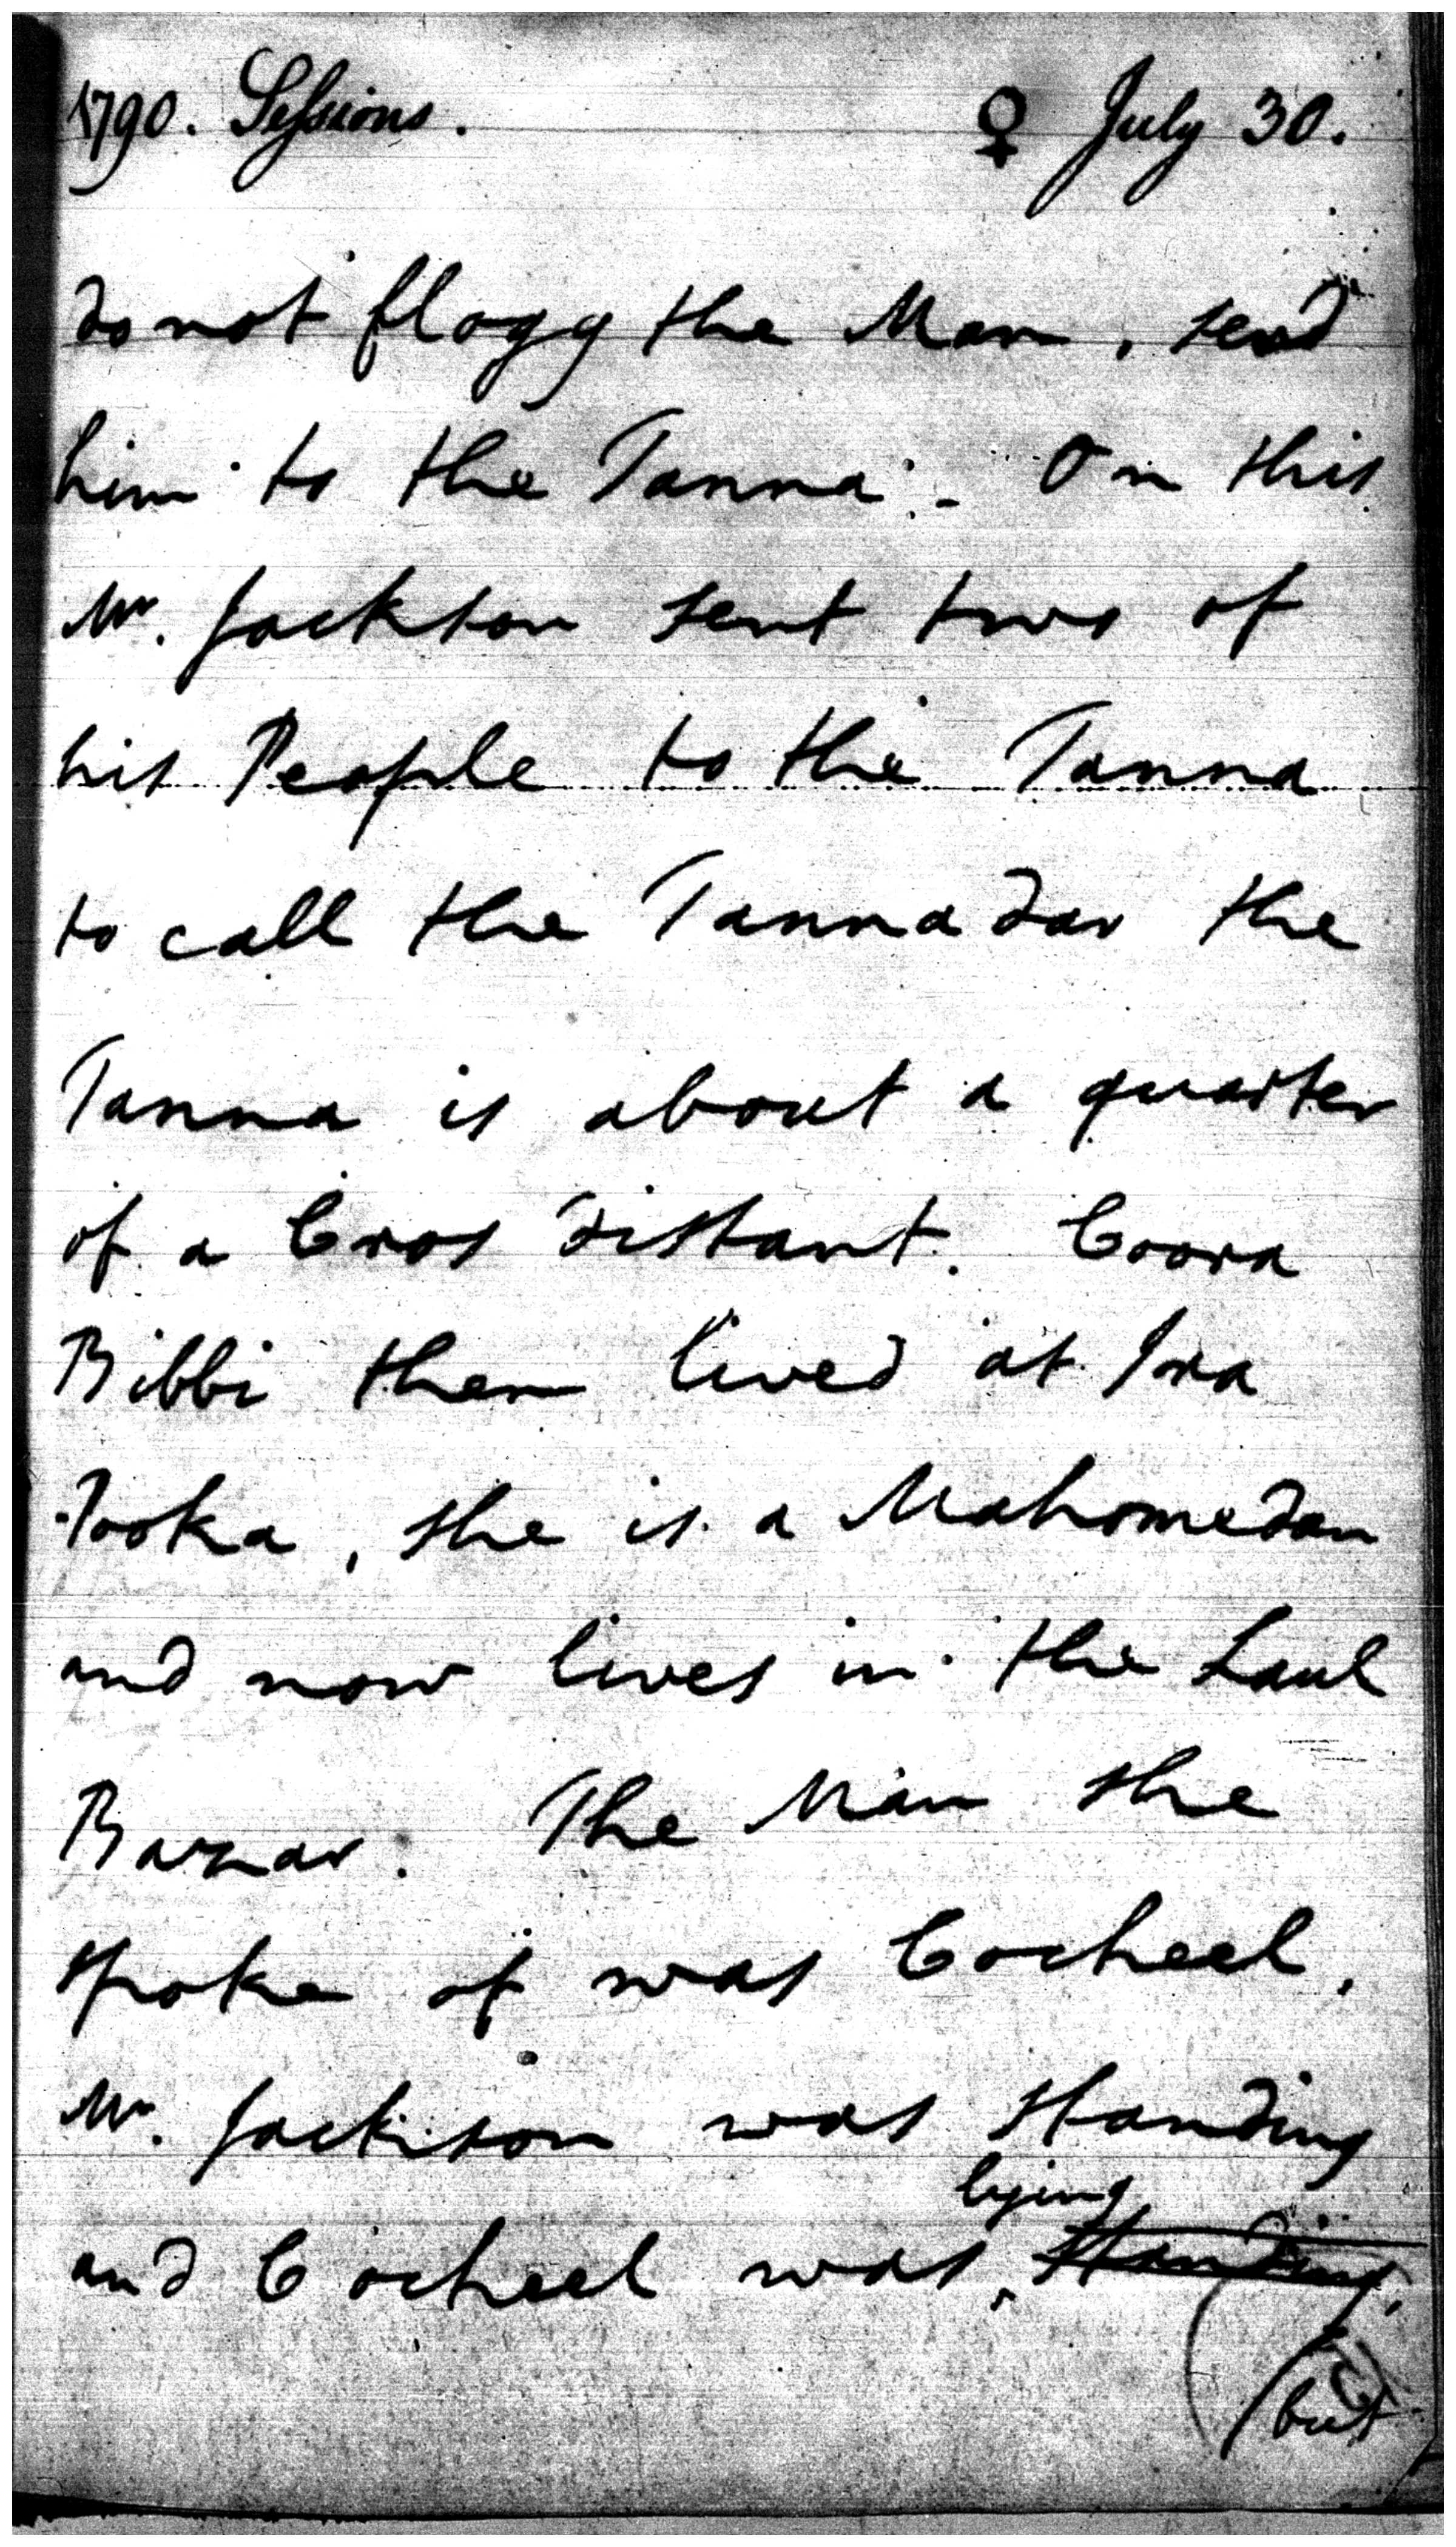 1790. Sessions. ♀ July 30.
do not flogg the Man, send
him to the Tanna:- On this
Mr. Jackson sent two of
his People to the Tanna
to call the Tannadar the
Tanna is about a quarter
of a Cros distant. Coora
Bibbi then lived at Jna
Pooka, she is a Mahomedan
and now lives in the Laul
Bazar. The Man she
spoke of was Cocheel.
Mr. Jackson was standing
lying
and Cocheel was, standing,
/but